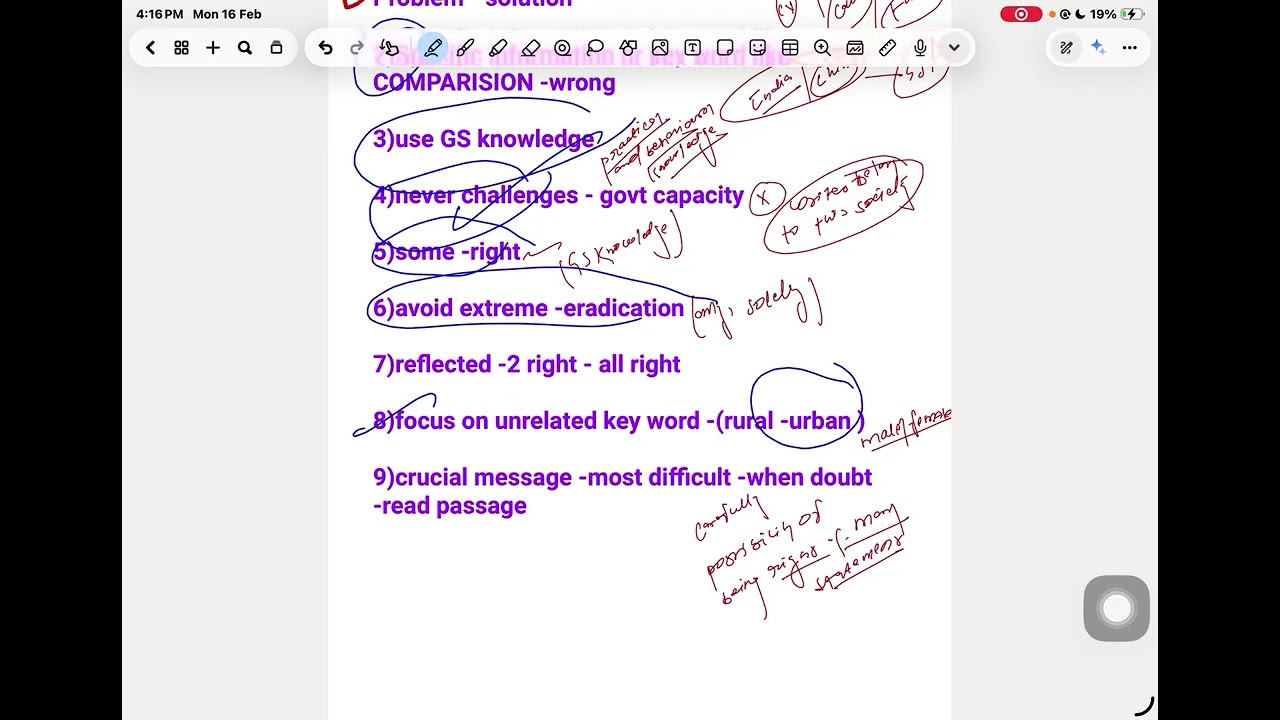 4:16 PM Mon 16 Feb
19%
Problem - solution
COMPARISION -wrong
India
3)use GS knowledge
practical
and behaviour
knowledge
4)never challenges - govt capacity
X
to this society
5)some -right
(GS knowledge)
6)avoid extreme -eradication
(only, solely)
7)reflected -2 right - all right
8)focus on unrelated key word -(rural -urban )
male/female
9)crucial message -most difficult -when doubt
-read passage
carefully
possibility of
being right if many
statements